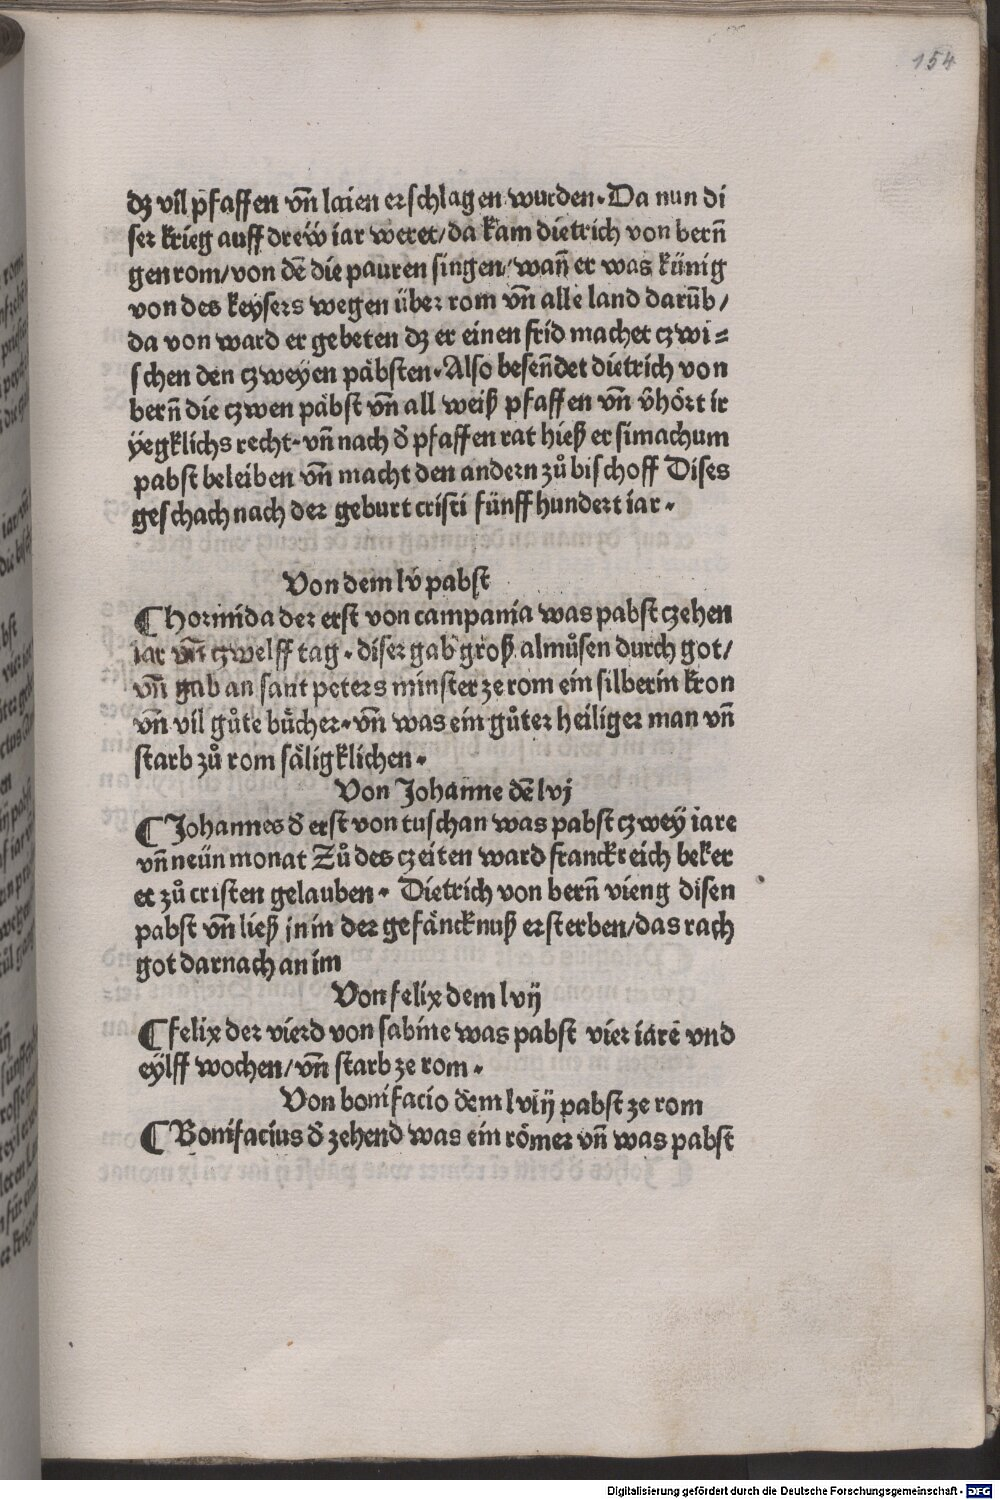 154
dz vil pfaffen vn̄ laien erschlagen wurden. Da nun di
ser krieg auff drew̋ iar weret/ da kam dietrich von bern̄
gen rom/ von dē die pauren singen/ wan̄ er was künig
von des keysers wegen über rom vn̄ alle land darūb/
da von ward er gebeten dz er einen frid machet czwi=
schen den czweyen päbsten. Also besen̄det dietrich von
bern̄ die czwen päbst vn̄ all weiß pfaffen vn̄ v̄hört ir
ÿegklichs recht. vn̄ nach d̄ pfaffen rat hieß er simachum
pabst beleiben vn̄ macht den andern zů bischoff Dises
geschach nach der geburt cristi fünffhundert iar.
Von dem lv pabst
¶ Hormida der erst von campania was pabst czehen
iar vn̄ czwelff tag. diser gab groß almůsen durch got/
vn̄ gab an sant peters minster ze rom ein silberin kron
vn̄ vil gůte bůcher. vn̄ was ein gůter heiliger man vn̄
starb zů rom säligklichen.
Von Johanne dē lvj
¶ Johannes d̄ erst von tuschan was pabst czweÿ iare
vn̄ neün monat Zů des czeiten ward franckreich beker
et zů cristen gelauben. Dietrich von bern̄ vieng disen
pabst vn̄ ließ jn in der gefäncknuß ersterben/ das rach
got darnach an im
Von felix dem lvij
¶ felix der vierd von sabine was pabst vier iare vnd
eÿlff wochen/ vn̄ starb ze rom.
Von bonifacio dem lviij pabst ze rom
¶ Bonifacius d̄ zehend was ein römer vn̄ was pabst
Digitalisierung gefördert durch die Deutsche Forschungsgemeinschaft - DFG